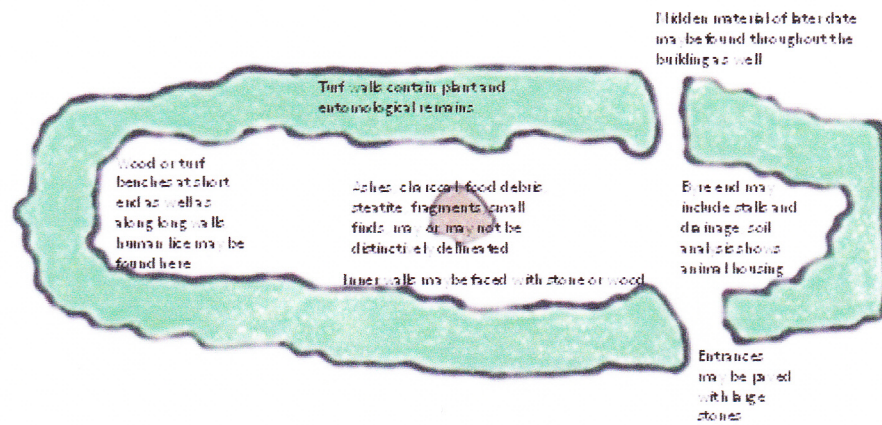 Midden material of later date
may be found throughout the
building as well
Turf walls contain plant and
entomological remains
Wood or turf
benches at short
end as well as
along long walls
human lice may be
found here
Ashes charcoal food debris
steatite fragments small
finds may or may not be
distinctively delineated
Byre end may
include stalls and
drainage soil
analysis shows
animal housing
Inner walls may be faced with stone or wood
Entrances
may be paved
with large
stones